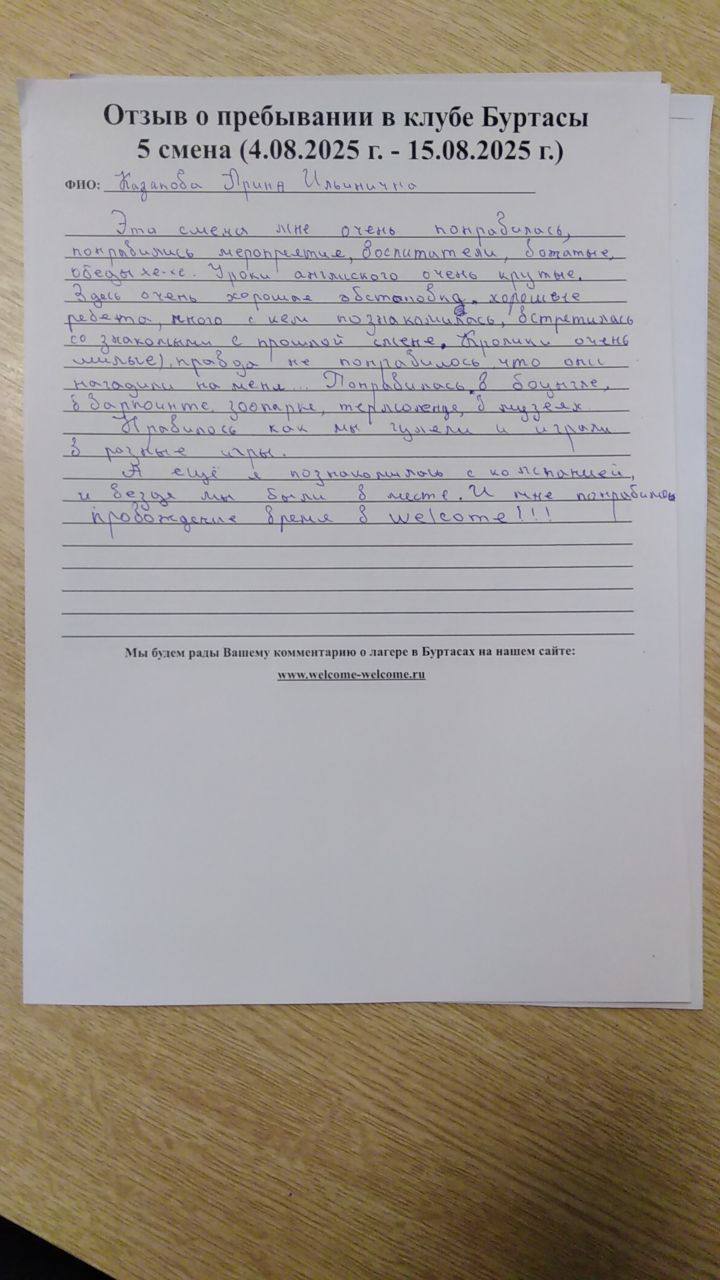 Отзыв о пребывании в клубе Буртасы
5 смена (4.08.2025 г. - 15.08.2025 г.)
ФИО: Казакова Арина Ильинична
Эта смена мне очень понравилась,
понравились мероприятие, воспитатели, вожатые,
обеды хе-хе. Уроки англиского очень крутые.
Здесь очень хорошая обстановка, хорошие
ребята, много с кем познакомилась, встретилась
со знакомыми с прошлой смене. Кролики очень
милые), правда не понравилось что они
нагадили на меня... Понравилась в
в зоопарке, термоленде, в музеях
Нравилось как мы гуляли и играли
в разные игры.
А ещё я познакомилась с компанией,
и везде мы были в месте. И мне понравилось
провождение время в welcome!!!
Мы будем рады Вашему комментарию о лагере в Буртасах на нашем сайте:
www.welcome-welcome.ru